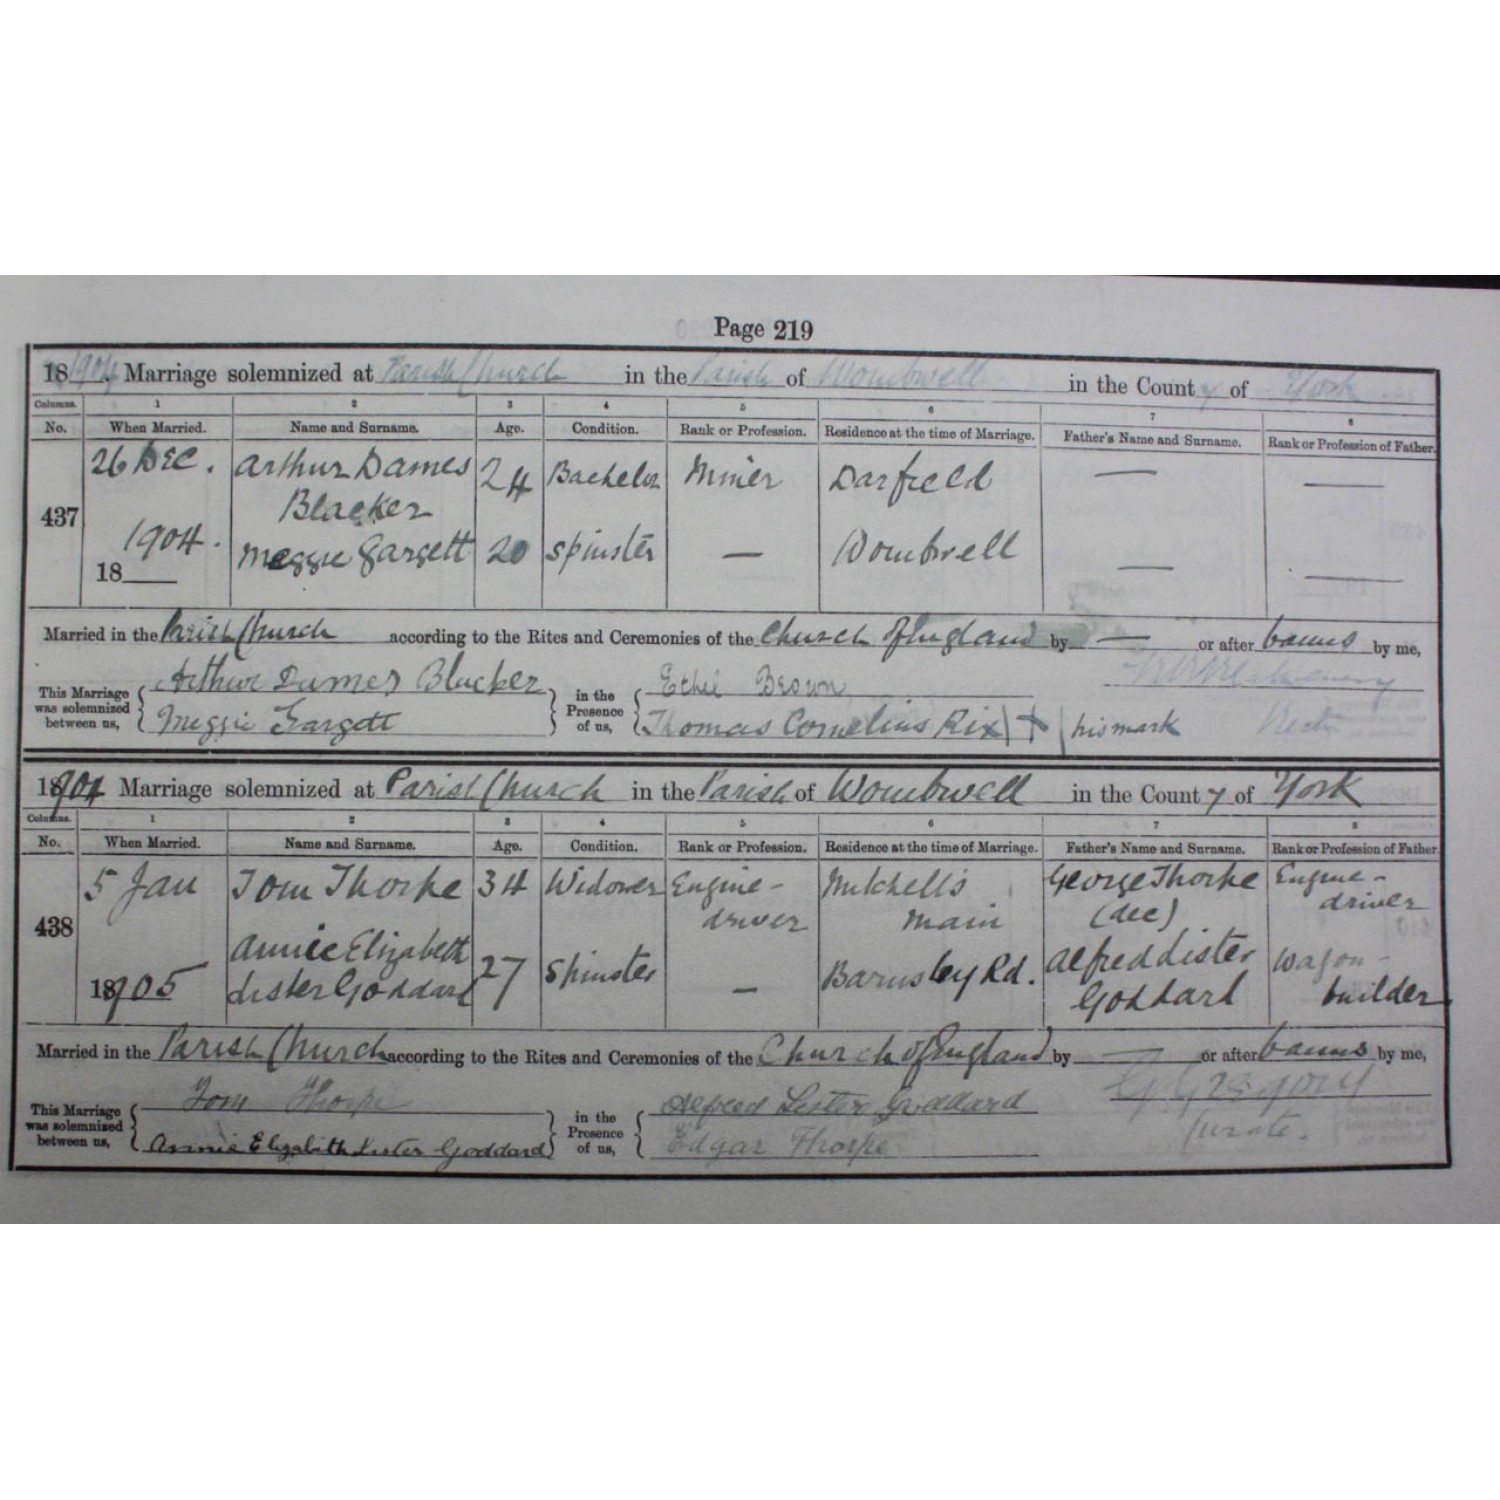 Page 219
18 1904. Marriage solemnized at Parish Church in the Parish of Wombwell in the County of York
Columns. 1 2 3 4 5 6 7 8
No. When Married. Name and Surname. Age. Condition. Rank or Profession. Residence at the time of Marriage. Father's Name and Surname. Rank or Profession of Father.
26 Dec. Arthur Dames 24 Bachelor Miner Darfield — —
Blacker
437
1904. Meggie Gargett 20 Spinster — Wombwell — —
18
Married in the Parish Church according to the Rites and Ceremonies of the Church of England by — or after banns by me,
This Marriage was solemnized between us, { Arthur Dames Blacker } in the Presence of us, { Ethel Brown
Meggie Gargett Thomas Cornelius Rix X his mark
1904 Marriage solemnized at Parish Church in the Parish of Wombwell in the County of York
Columns. 1 2 3 4 5 6 7 8
No. When Married. Name and Surname. Age. Condition. Rank or Profession. Residence at the time of Marriage. Father's Name and Surname. Rank or Profession of Father.
5 Jan Tom Thorpe 34 Widower Engine- Mitchell's George Thorpe Engine-
driver Main (dec) driver
438
Annie Elizabeth 27 Spinster — Barnsley Rd. Alfred Lister Wagon-
1905 Lister Goddard Goddard builder
Married in the Parish Church according to the Rites and Ceremonies of the Church of England by — or after banns by me,
This Marriage was solemnized between us, { Tom Thorpe } in the Presence of us, { Alfred Lister Goddard G. Gregory
Annie Elizabeth Lister Goddard Edgar Thorpe Curate.